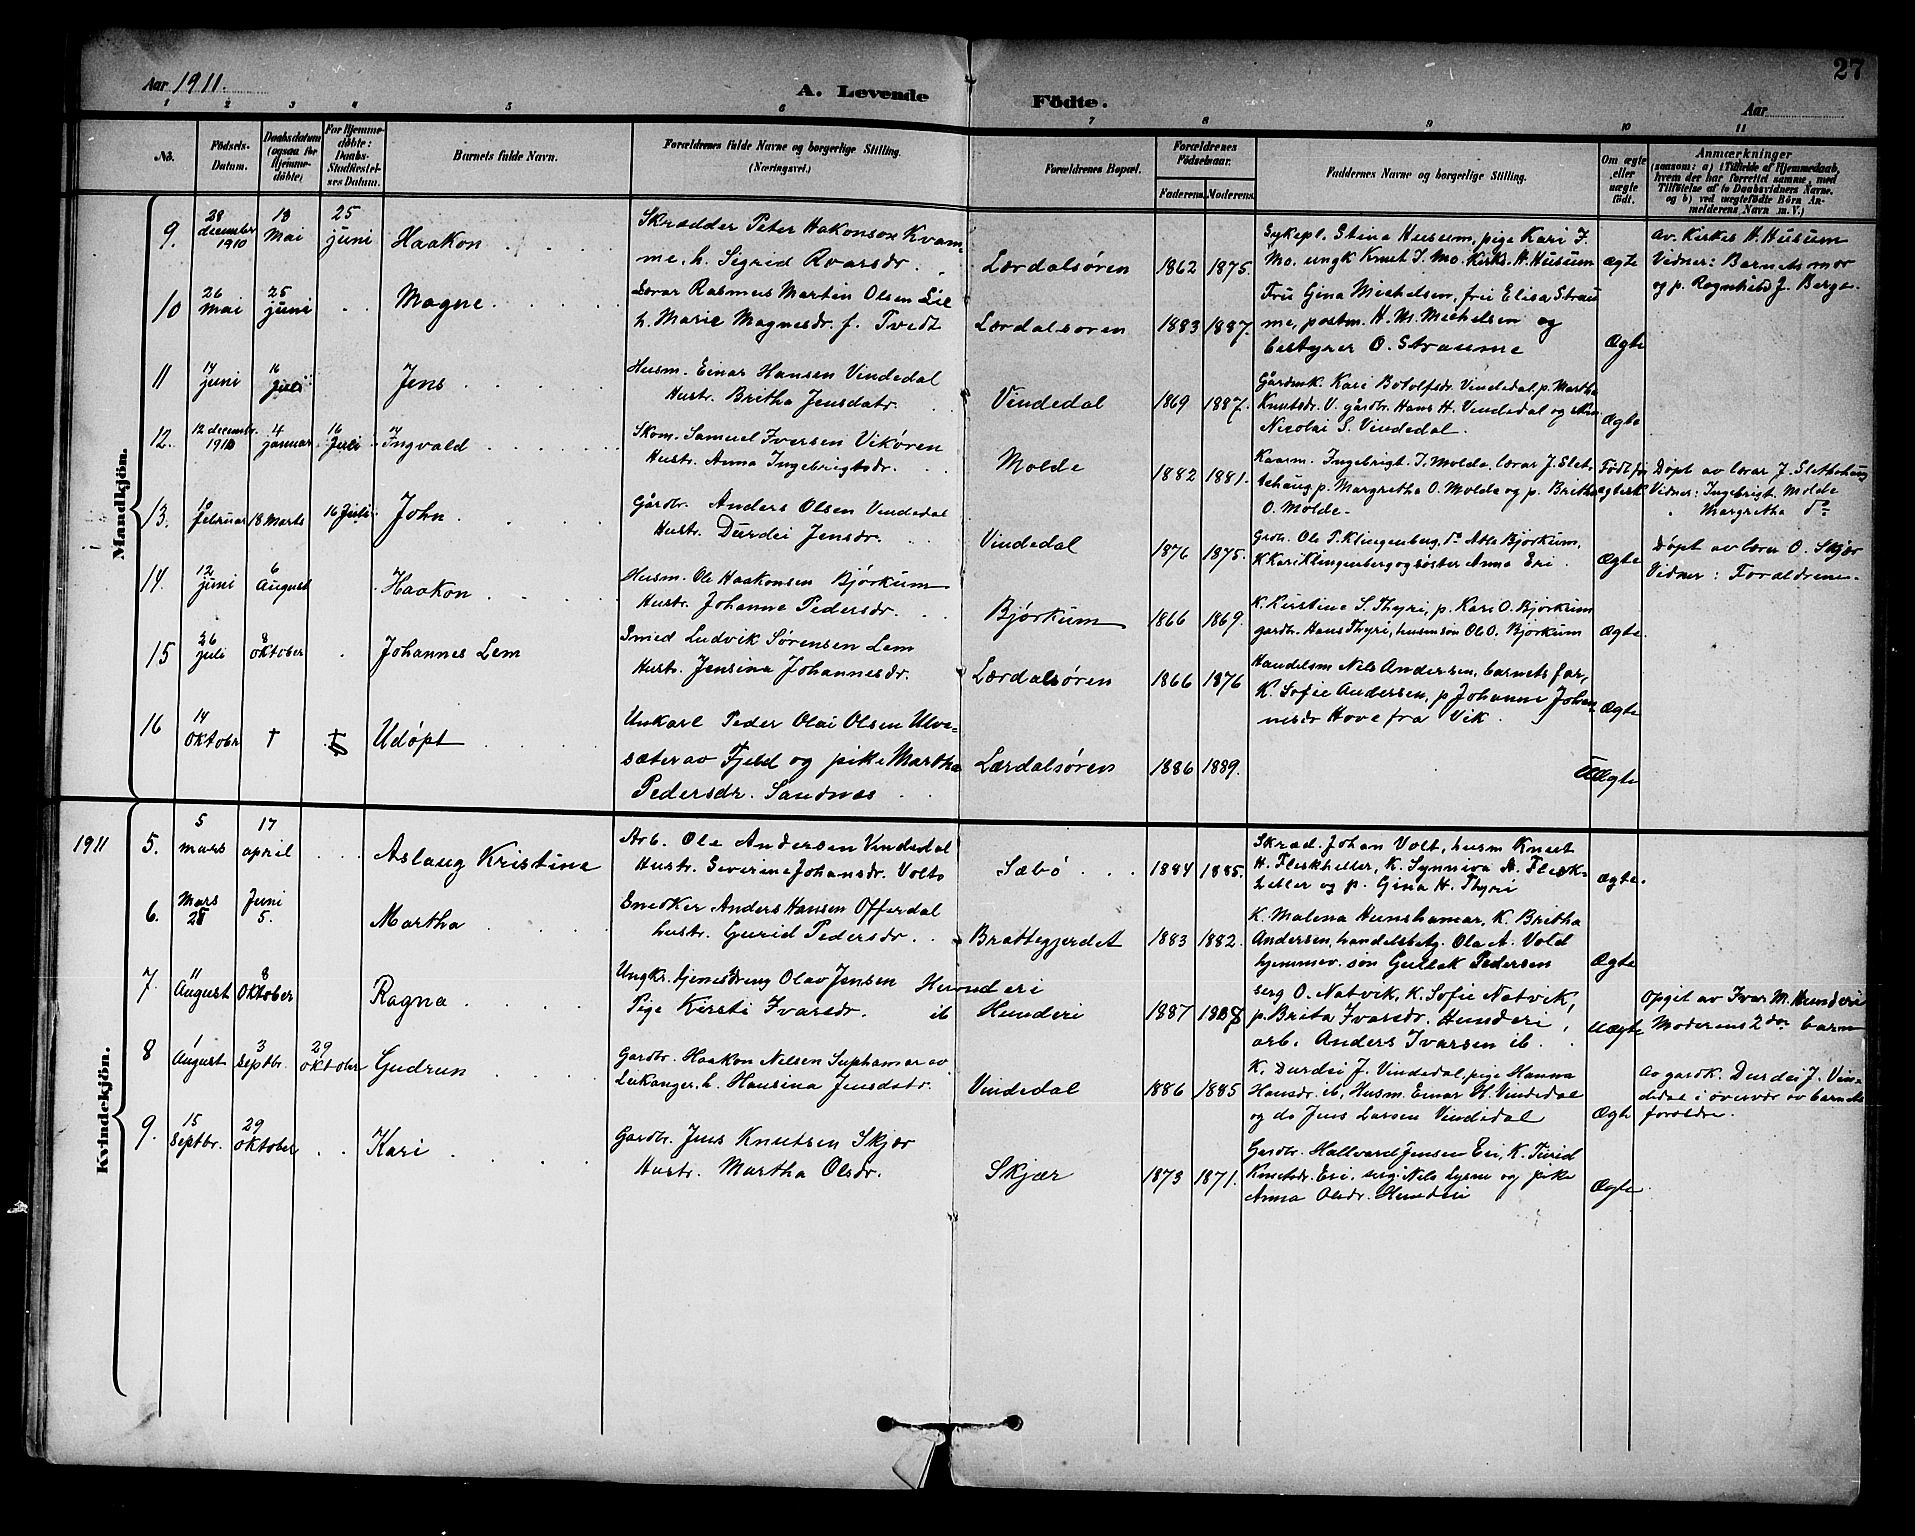 Aar 1911.
A. Levende Födte.
27
Aar
1 2 3 4 5 6 7 8 9 10 11
No.
Födsels-Datum.
Daabsdatum (ogsaa for Hjemme-döbte)
For Hjemme-döbte: Daabs-Stadfæstel-ses Datum.
Barnets fulde Navn.
Forældrenes fulde Navne og borgerlige Stilling.
(Næringsvei.)
Forældrenes Bopæl.
Forældrenes Födselsaar.
Faderens. Moderens.
Faddernes Navne og borgerlige Stilling.
Om ægte eller uægte födt.
Anmærkninger
(saasom: a) i Tilfælde af Hjemmedaab,
hvem der har forrettet samme, med
Tilföielse af to Daabsvidners Navne.
og b) ved uægtefödte Börn An-
melderens Navn m. V.)
Mandkjön.
9. 28 december 1910 13 Mai 25 juni Haakon
Skrædder Peter Hakonson Kvam-
me, h. Sigrid Ivarsdr.
Lærdalsøren 1862 1875.
Sykepl. Stina Husum, pige Kari J.
Mo. ungk Knut J. Mo. Kirks. H. Husum
Ægte
Av. Kirkes H. Husum
Vidner: Barnets mor
og p. Ragnhild J. Berge.
10 26 Mai 25 juni Magne
Lærar Rasmus Martin Olsen Lie
h. Marie Magnesdr. f. Tvedt
Lærdalsøren 1883 1887.
Fru Gina Michelsen, fru Elisa Strau
me, postm. H. M. Michelsen og
bestyrer O. Straume
Ægte
11 14 juni 16 Juli Jens
Husm. Einar Hansen Vindedal
Hustr. Britha Jensdatr.
Vindedal 1869 1887.
Gårdmk. Kari Botolfsdr. Vindedal, p. Martha
Knutsdr. V. gårdbr. Hans H. Vindedal og
Nicolai S. Vindedal.
Ægte
12. 12 decembr. 1910 4 januar 16 Juli Ingvald
Skom. Samuel Iversen Vikøren
Hustr. Anna Ingebrigtsdr.
Molde 1882 1881.
Kaarm. Ingebrigt. J. Molde, lærar J. Slet,
tehaug, p. Margretha O. Molde og p. Britha
O. Molde.
Født før
ægtesk
Døpt av lærar J. Slettehaug
Vidner: Ingebrigt Molde
Margretha do
13. 10 Februar 18 Marts 16 Juli John
Gårdbr. Anders Olsen Vindedal
Hustr. Durdei Jensdr.
Vindedal 1876 1875.
Ole P. Klingenberg, do Atle Bjørkum,
K Kari Klingenberg og søster Anna Eri.
Ægte
Døpt av lærer O. Skjær
Vidner: Foræeldrene
14. 12 juni 6 August Haakon
Husm. Ole Haakonsen Bjørkum
Hustr. Johanne Pedersdr.
Bjørkum 1866 1869.
K. Kristine S. Thyri, p. Kari O. Bjørkum
gardbr. Hans Thyri, husmsøn Ole O. Bjørkum
Ægte
15 26 juli 8 oktober Johannes Lem
Smed Ludvik Sørensen Lem
Hustr. Jensina Johannesdr.
Lærdalsøren 1866 1876
Handelsm Nels Andersen, barnets far,
K. Sofie Andersen, p Johanne Johan-
nesdr Hove fra Vik.
Ægte
16 14 oktobr † † Udøpt
Unkarl Peder Olai Olsen Ulve-
sæter av Fjeld og pike Martha
Pedersdr. Sandnæs
Lærdalsøren 1886 1889.
Uægte
Kvindekjön.
1911 5. 5 mars 17 april Aslaug Kristine
Arb. Ole Andersen Vindedal
Hustr. Severina Johansdr. Volts
Sæbø 1884 1885.
Skræd. Johan Volt, husm Knut
H. Fleskheller, K. Synniva A. Flesk-
heller og p. Gina H. Thyri
ægte.
6. Mars 25 Juni 5. Martha
Snedker Anders Hansen Offerdal
hustr. Gurid Pedersdr.
Brattegjerdet 1883 1882.
K. Malena Hunshamar, K. Britha
Andersen, handelsbetj. Ola A. Vold
hjemmev. søn Gullak Pedersen
Ægte
7. 11 August 8 Oktober Ragna
Ungkr. tjenestdreng Olav Jensen Hunderi
Pige Kirsti Ivarsdr. ib
Hunderi 1887 1888
serg O. Natvik, K. Sofie Natvik,
p. Brita Ivarsdr. Hunderi,
arb. Anders Ivarsen ib.
uægte
Opgit av Ivar M. Hunderi
Moderens 2det barn
8 1 August 3 septbr. 29 oktober Gudrun
Gardbr. Haakon Nilsen Suphamar av
Leikanger, h. Hansina Jensdatr.
Vindedal 1886 1885
K. Durdei J. Vindedal, pige Hanna
Hansdr. ib, Husm. Einar H. Vindedal
og do Jens Larsen Vindedal
Ægte
Av gardk. Durdei J. Vin-
dedal i overvær av barnets
foræeldre.
9. 15 septbr. 29 oktober Kari
Gardbr. Jens Knutsen Skjær
Hustr. Martha Olsdr.
Skjær 1873 1871.
Gardbr. Hallvard Jensen Eri, K. Turid
Knutsdr. Eri, serg. Nels Lysne og pike
Anna Olsdr. Hunderi
Ægte